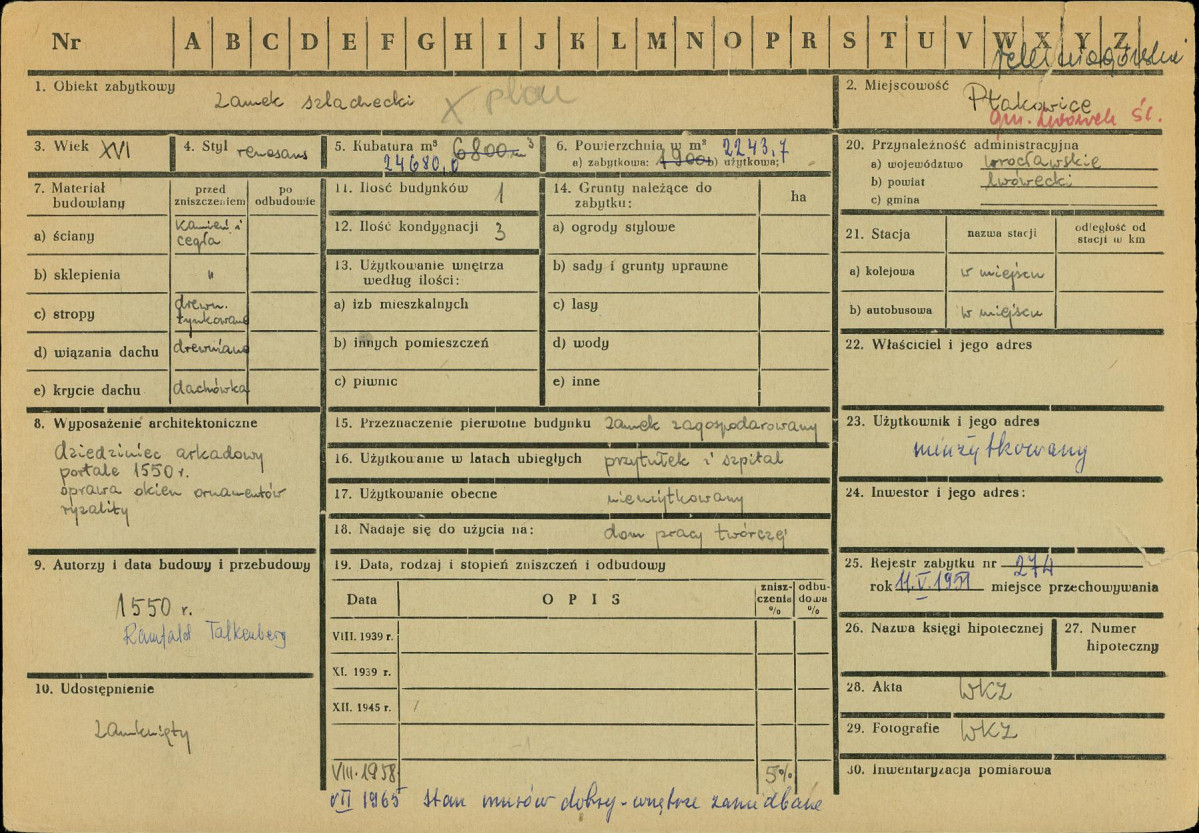 Nr A B C D E F G H I J K L M N O P R S T U V W X Y Z
1. Obiekt zabytkowy Zamek szlachecki X plan
2. Miejscowość Płakowice
gm. Lwówek Śl.
3. Wiek XVI
4. Styl renesans
5. Kubatura m³ 6800 m³
24680,0
6. Powierzchnia w m² 2243,7
a) zabytkowa: 1900 b) użytkowa:
20. Przynależność administracyjna
a) województwo wrocławskie
b) powiat lwówecki
c) gmina
7. Materiał budowlany
przed zniszczeniem
po odbudowie
a) ściany kamień i cegła
b) sklepienia "
c) stropy drewn. tynkowane
d) wiązania dachu drewniane
e) krycie dachu dachówka
11. Ilość budynków 1
12. Ilość kondygnacji 3
13. Użytkowanie wnętrza
według ilości:
a) izb mieszkalnych
b) innych pomieszczeń
c) piwnic
14. Grunty należące do
zabytku:
ha
a) ogrody stylowe
b) sady i grunty uprawne
c) lasy
d) wody
e) inne
21. Stacja
nazwa stacji
odległość od
stacji w km
a) kolejowa w miejscu
b) autobusowa w miejscu
22. Właściciel i jego adres
8. Wyposażenie architektoniczne
dziedziniec arkadowy
portale 1550 r.
oprawa okien ornamentów
ryzality
15. Przeznaczenie pierwotne budynku zamek zagospodarowany
16. Użytkowanie w latach ubiegłych przytułek i szpital
17. Użytkowanie obecne nieużytkowany
18. Nadaje się do użycia na: dom pracy twórczej
23. Użytkownik i jego adres
nieużytkowany
24. Inwestor i jego adres:
9. Autorzy i data budowy i przebudowy
1550 r.
Ramfald Talkenberg
10. Udostępnienie
zamknięty
19. Data, rodzaj i stopień zniszczeń i odbudowy
Data
OPIS
znisz-
czenia
%
odbu-
dowa
%
VIII. 1939 r.
XI. 1939 r.
XII. 1945 r.
VIII. 1958 5%
VII 1965 stan murów dobry - wnętrze zaniedbane
25. Rejestr zabytku nr 274
rok 11.V.1951 miejsce przechowywania
26. Nazwa księgi hipotecznej
27. Numer
hipoteczny
28. Akta WKZ
29. Fotografie WKZ
30. Inwentaryzacja pomiarowa